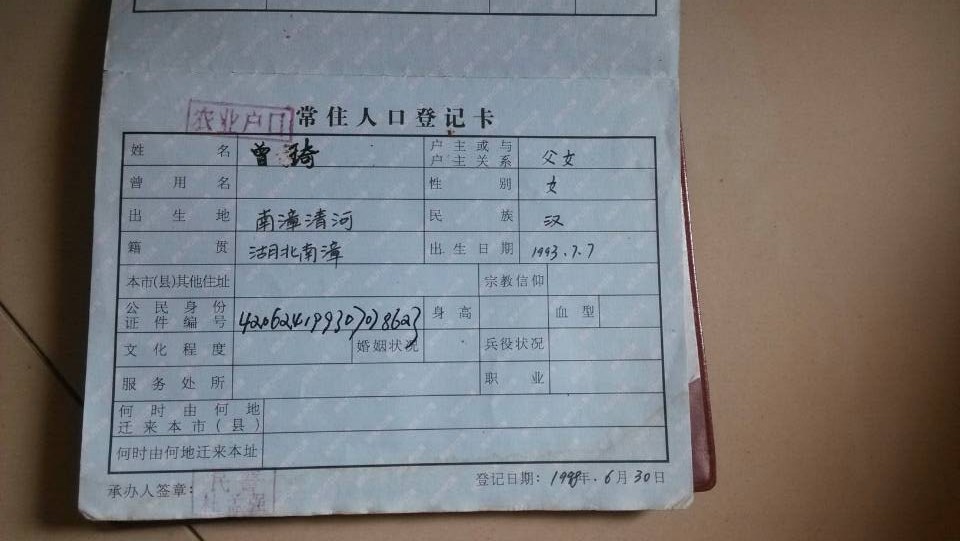 农业户口 常住人口登记卡
姓名 曾琦 户主或与户主关系 父女
曾用名 性别 女
出生地 南漳清河 民族 汉
籍贯 湖北南漳 出生日期 1993.7.7
本市(县)其他住址 宗教信仰
公民身份证件编号 420624199307078623 身高 血型
文化程度 婚姻状况 兵役状况
服务处所 职业
何时由何地迁来本市(县)
何时由何地迁来本址
承办人签章: 登记日期: 1998年.6月30日